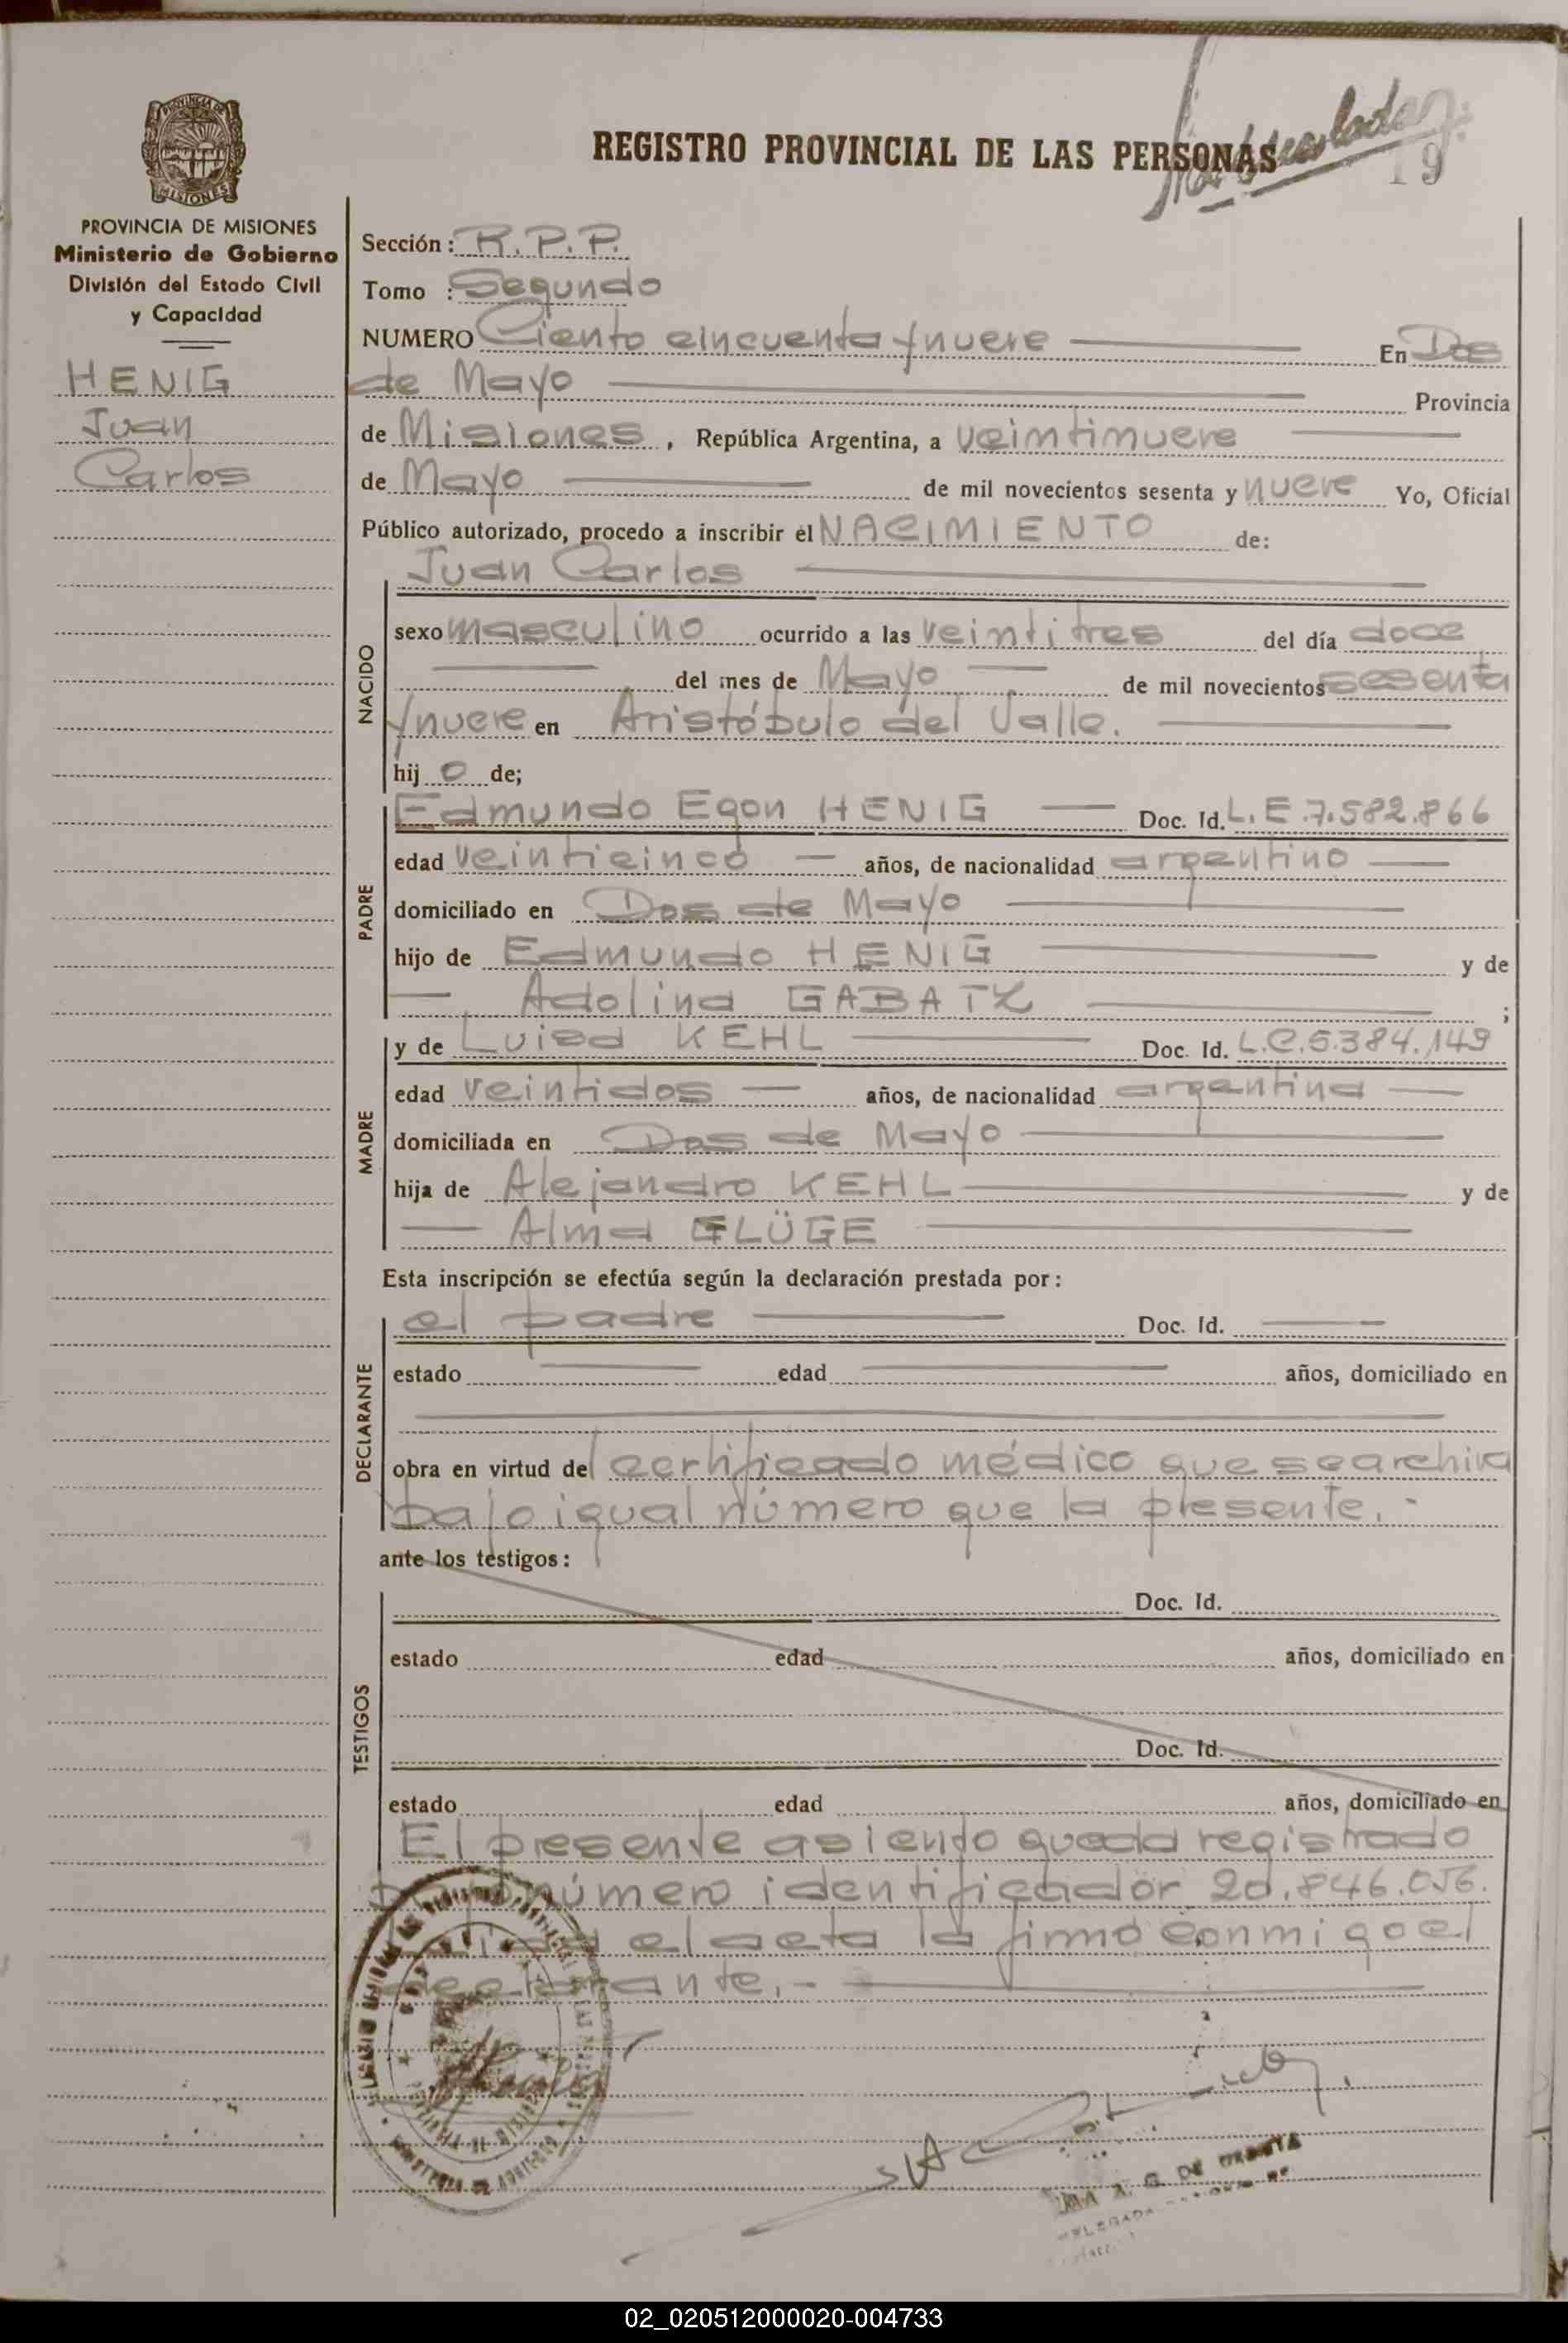 PROVINCIA DE
MISIONES
REGISTRO PROVINCIAL DE LAS PERSONAS
19
PROVINCIA DE MISIONES
Ministerio de Gobierno
División del Estado Civil
y Capacidad
HENIG
Juan
Carlos
Sección: R.P.P.
Tomo : Segundo
NUMERO Ciento cincuenta y nueve En Dos
de Mayo Provincia
de Misiones, República Argentina, a veintinueve
de Mayo de mil novecientos sesenta y nueve Yo, Oficial
Público autorizado, procedo a inscribir el NACIMIENTO de:
Juan Carlos
NACIDO
sexo masculino ocurrido a las veintitres del día doce
del mes de Mayo de mil novecientos sesenta
y nueve en Aristóbulo del Valle.
hij o de;
PADRE
Edmundo Egon HENIG Doc. Id. L.E.7.582.866
edad veinticinco años, de nacionalidad argentino
domiciliado en Dos de Mayo
hijo de Edmundo HENIG y de
Adolina GABATZ ;
MADRE
y de Luisa KEHL Doc. Id. L.C.5.384.149
edad veintidos años, de nacionalidad argentina
domiciliada en Dos de Mayo
hija de Alejandro KEHL y de
Alma GLÜGE
Esta inscripción se efectúa según la declaración prestada por:
DECLARANTE
el padre Doc. Id.
estado edad años, domiciliado en
obra en virtud del certificado médico que se archiva
bajo igual número que la presente.-
ante los testigos:
TESTIGOS
Doc. Id.
estado edad años, domiciliado en
Doc. Id.
estado edad años, domiciliado en
El presente asiento queda registrado
número identificador 20.846.056.
el acta la firmó conmigo el
declarante.-
02_020512000020-004733